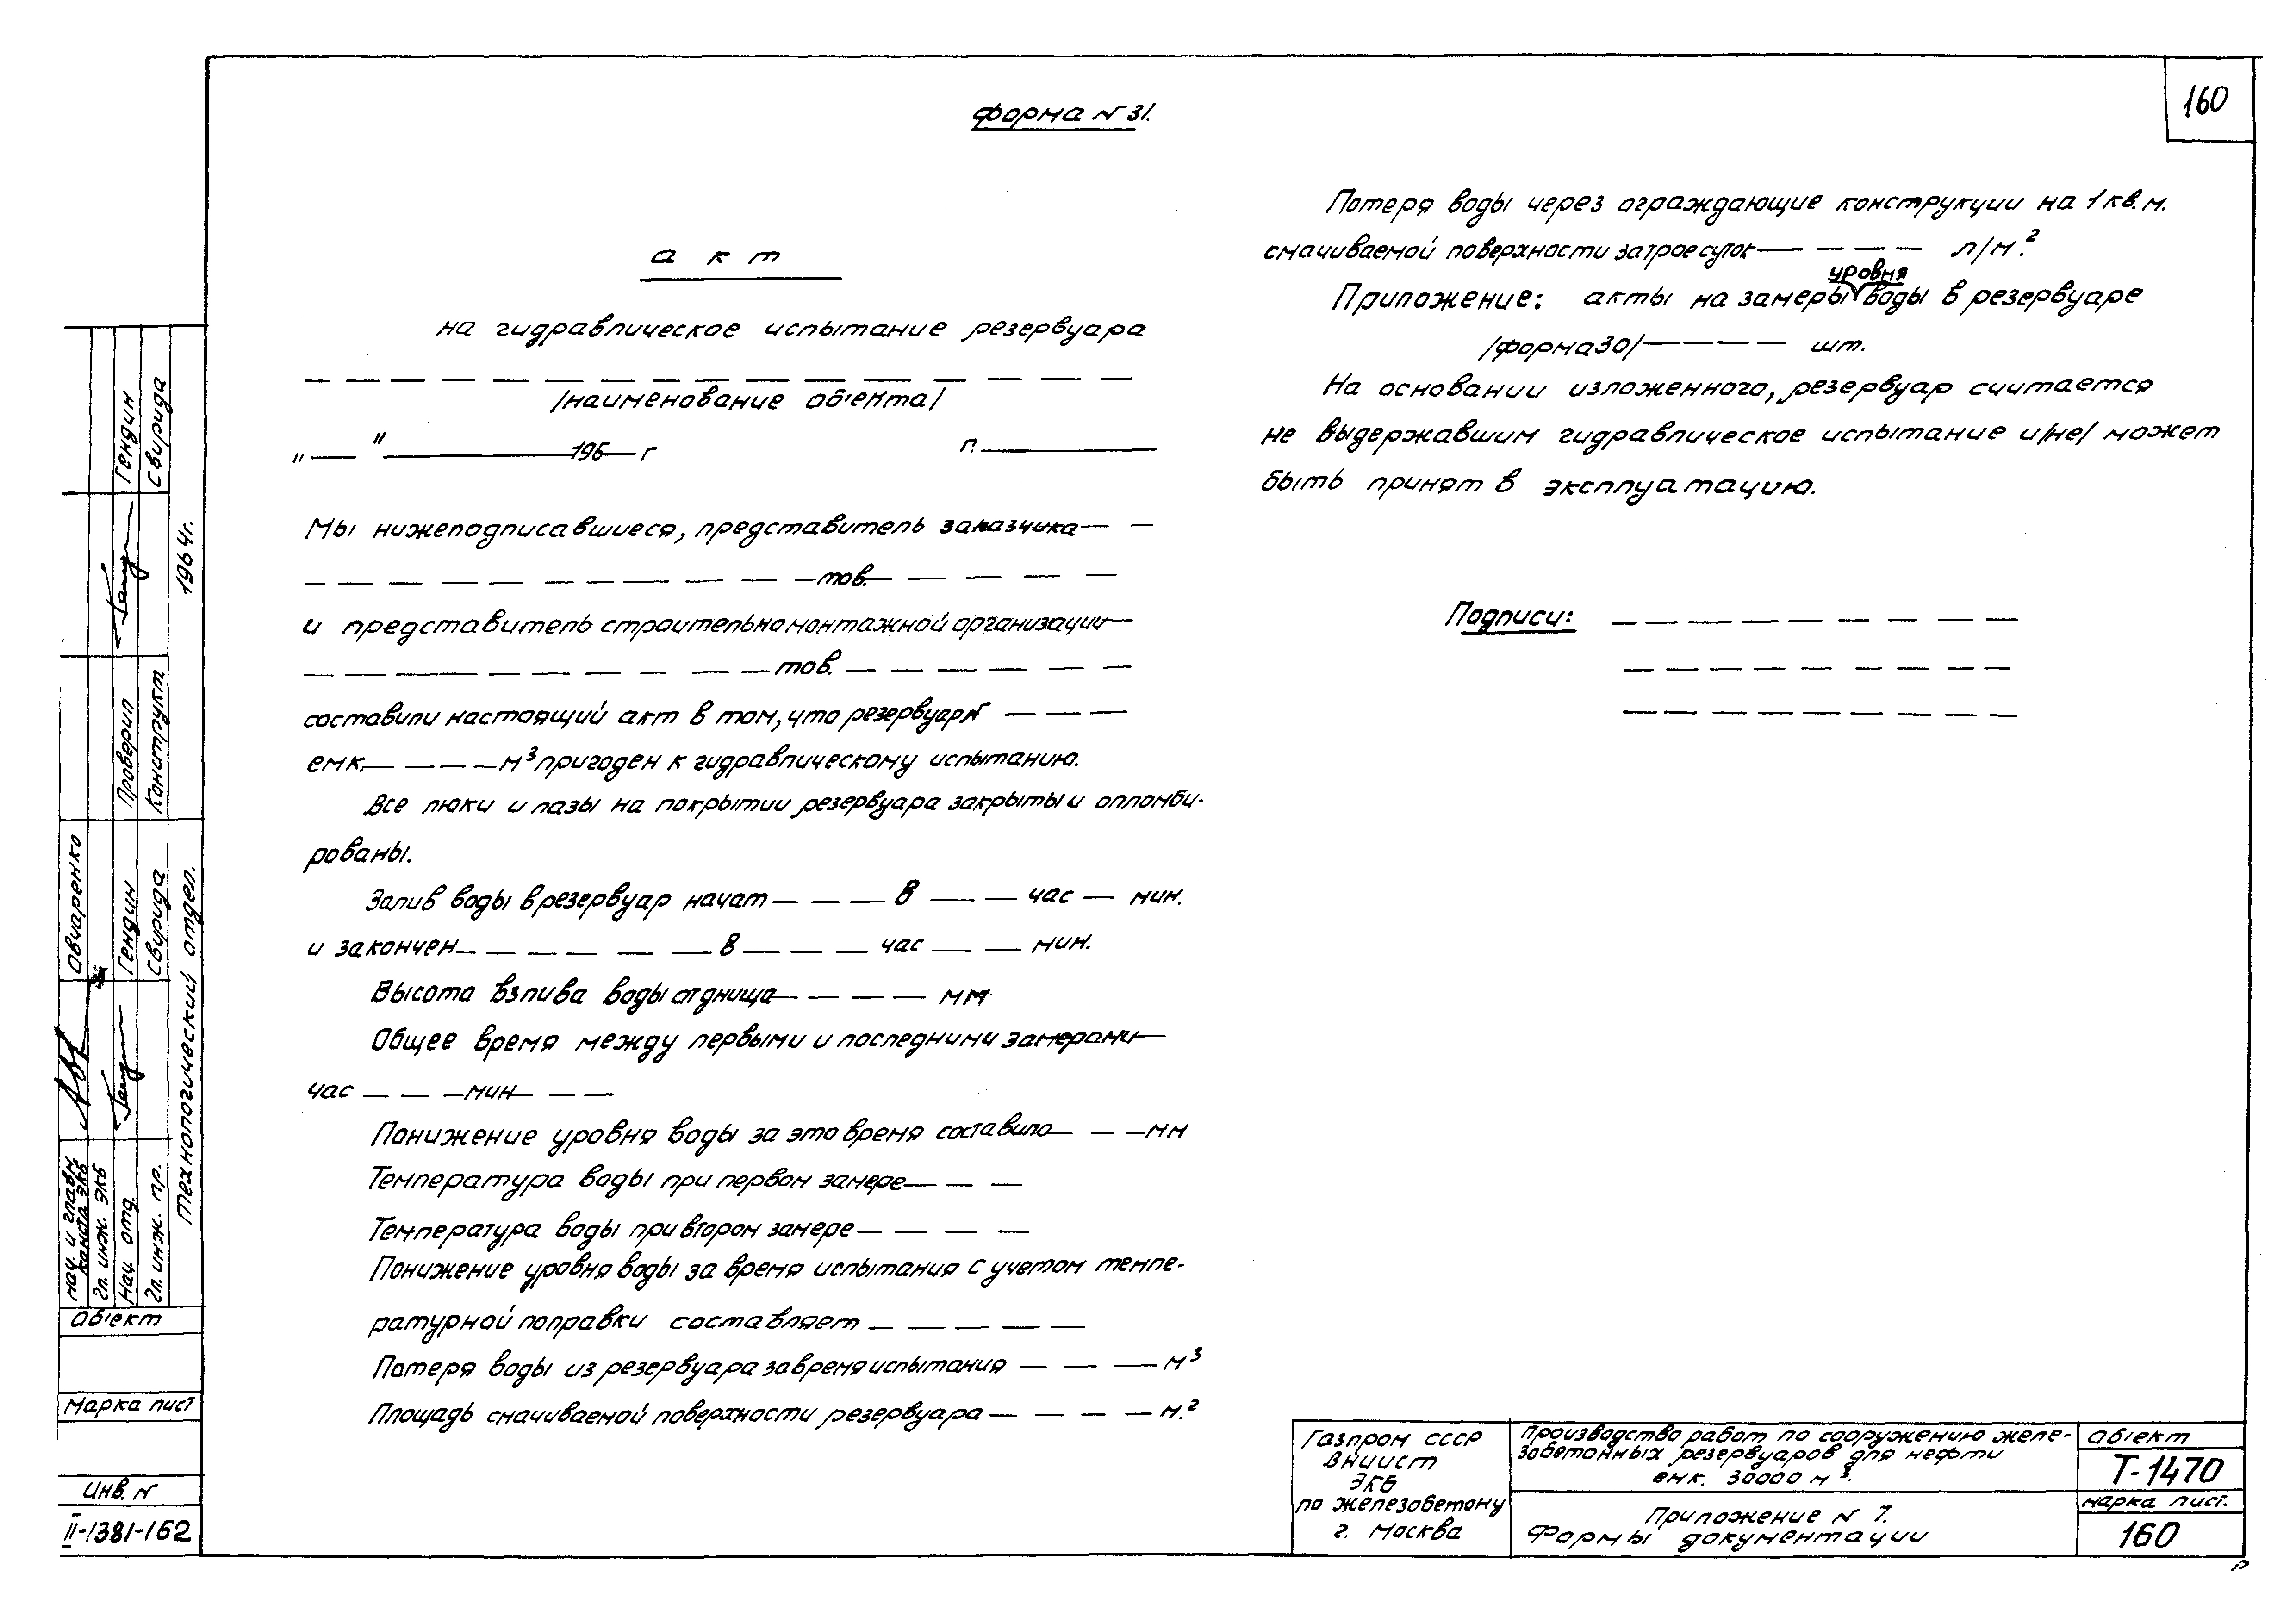 160
Форма N 31.
акт
на гидравлическое испытание резервуара
/наименование об'екта/
"——" ——————196——г г.——————
Мы нижеподписавшиеся, представитель заказчика— —
— — — — — — — — — —тов.— — — — — —
и представитель строительномонтажной организации—
— — — — — — — — — —тов.— — — — — — —
составили настоящий акт в том, что резервуар N — — —
емк.— — — —м³ пригоден к гидравлическому испытанию.
Все люки и лазы на покрытии резервуара закрыты и опломби-
рованы.
Залив воды в резервуар начат— — — в — — час — мин.
и закончен— — — — — —в— — — час — — мин.
Высота взлива воды от днища— — — — мм
Общее время между первыми и последними замерами—
час — — —мин— — —
Понижение уровня воды за это время составило— — —мм
Температура воды при первом замере— — —
Температура воды при втором замере— — — —
Понижение уровня воды за время испытания с учетом темпе-
ратурной поправки составляет — — — — —
Потеря воды из резервуара за время испытания — — — м³
Площадь смачиваемой поверхности резервуара— — — — м.²
Потеря воды через ограждающие конструкции на 1 кв. м.
смачиваемой поверхности за трое суток— — — — л/м.²
уровня
Приложение: акты на замеры воды в резервуаре
/форма 30/— — — — шт.
На основании изложенного, резервуар считается
не выдержавшим гидравлическое испытание и/не/ может
быть принят в эксплуатацию.
Подписи: — — — — — — — — —
— — — — — — — — —
— — — — — — — — —
Гендин
Свирида
1964г.
Проверил
Конструкт
Овчаренко
Гендин
Свирида
Технологический отдел.
Нач. и главн.
констр. ЭКБ
Гл. инж. ЭКБ
Нач. отд.
Гл. инж. пр.
Об'ект
Марка лист
Инв. N
II-1381-162
Газпром СССР
ВНИИСТ
ЭКБ
по железобетону
г. Москва
Производство работ по сооружению желе-
зобетонных резервуаров для нефти
емк. 30000 м³.
Приложение N 7.
Формы документации
Об'ект
Т-1470
марка лист.
160
Р